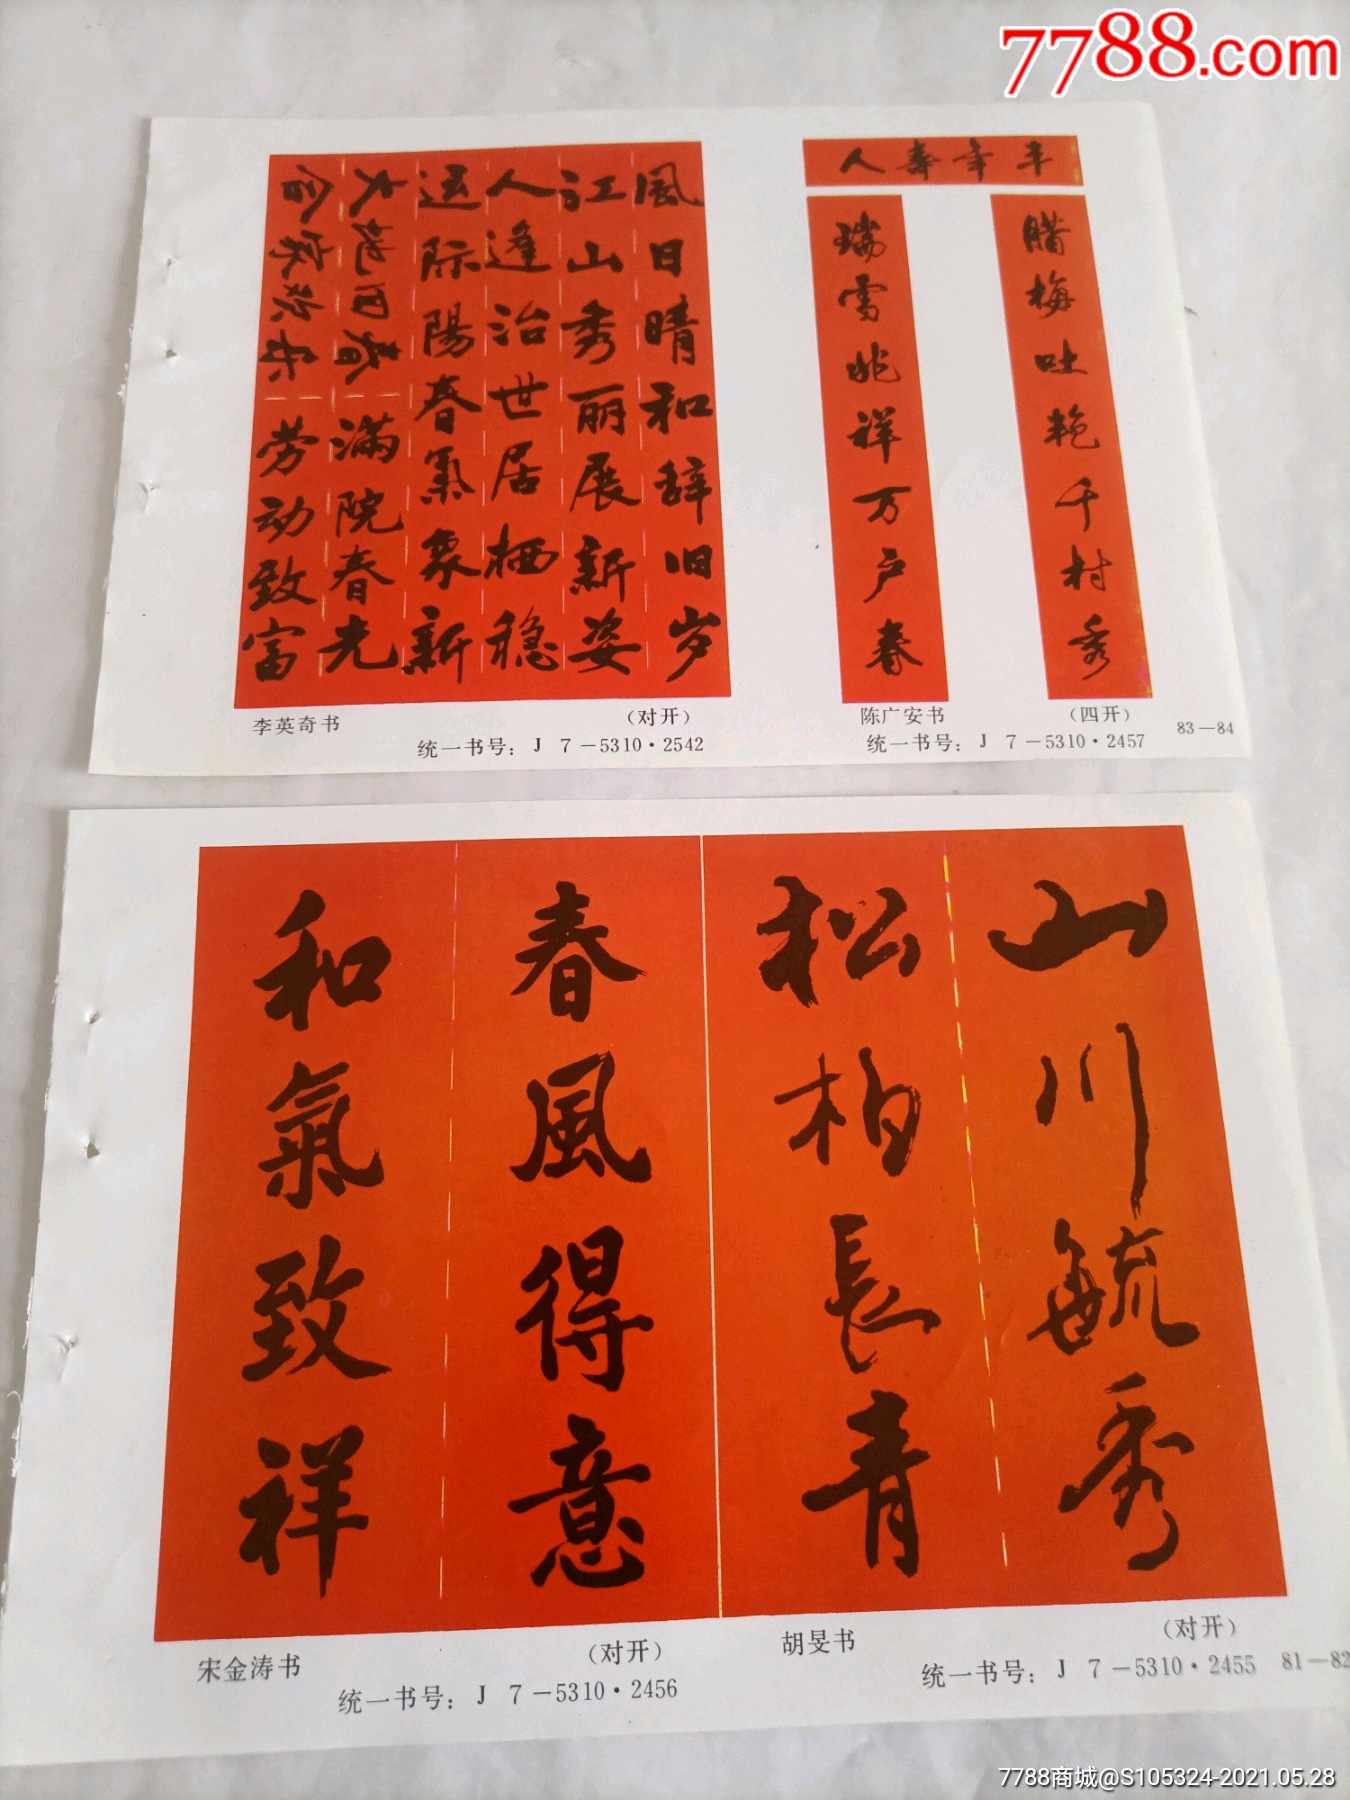 7788.com
風日晴和辞旧岁
江山秀丽展新姿
人逢治世居栖稳
运际陽春氣象新
大地回春
满院春光
合家欢乐
劳动致富
李英奇书
(对开)
统一书号：J 7－5310·2542
人寿年丰
腊梅吐艳千村秀
瑞雪兆祥万户春
陈广安书
(四开)
统一书号：J 7－5310·2457
83－84
春風得意
和氣致祥
宋金涛书
(对开)
统一书号：J 7－5310·2456
山川毓秀
松柏長青
胡旻书
(对开)
统一书号：J 7－5310·2455
81－82
7788商城@S105324-2021.05.28